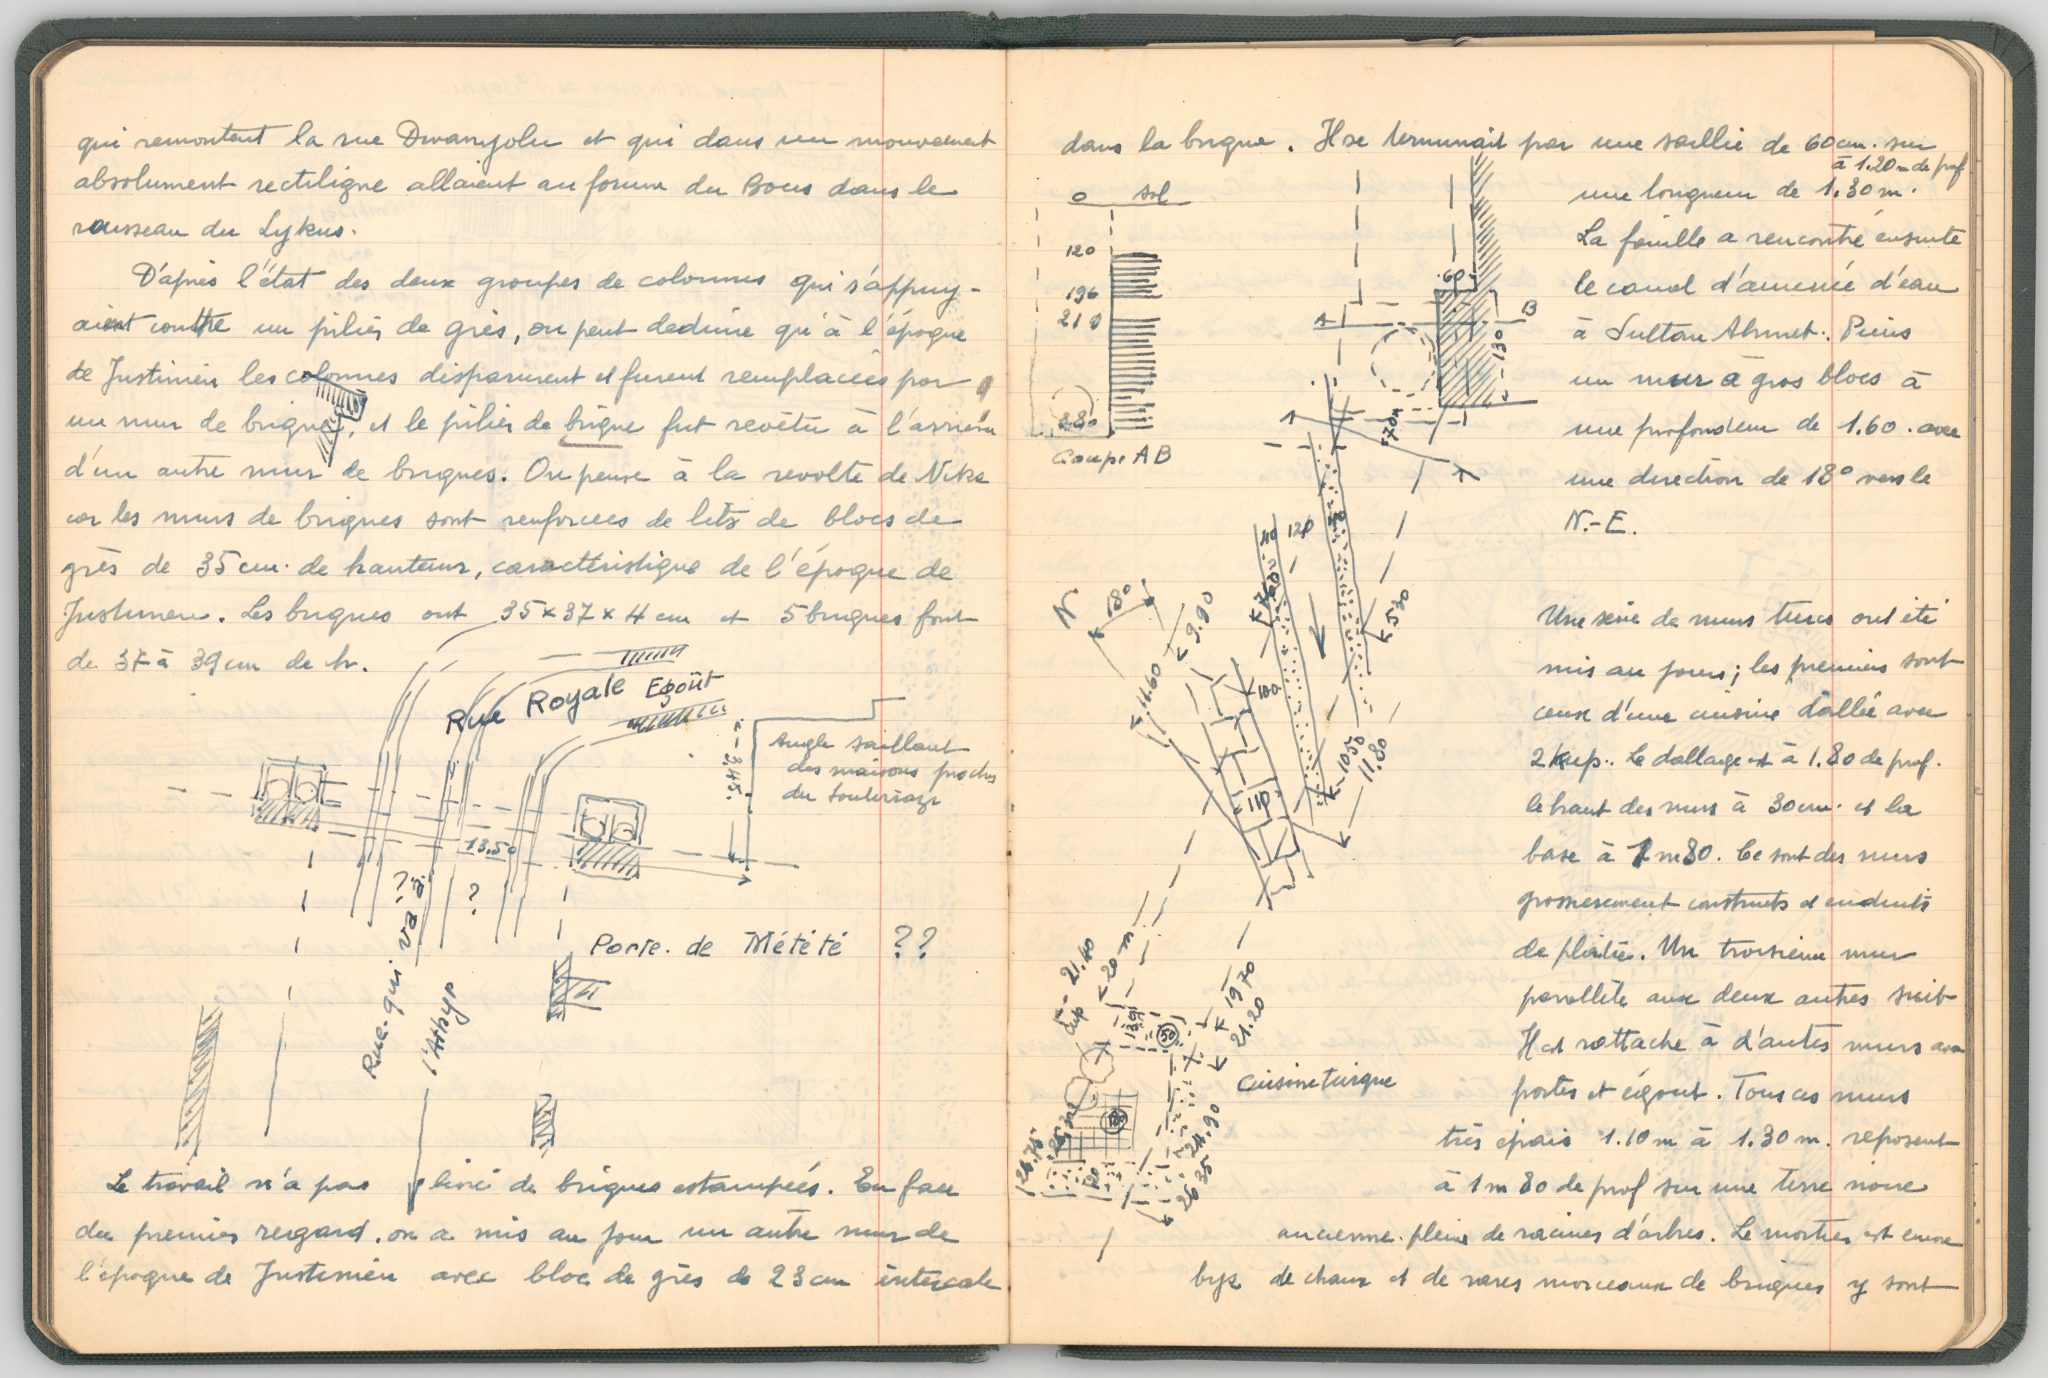 qui remontent la rue Divanyolu et qui dans un mouvement
absolument rectiligne allaient au forum du Bous dans le
rousseau du Lykus.
D'après l'état des deux groupes de colonnes qui s'appuy-
aient contre un pilier de grès, on peut deduire qu'à l'époque
de Justinien les colonnes disparurent et furent remplacées par
un mur de brique, et le pilier de brique fut revêtu à l'arrière
d'un autre mur de briques. On pense à la revolte de Nika
car les murs de briques sont renforcees de lits de blocs de
grès de 35 cm. de hauteur, caractéristique de l'époque de
Justinien. Les briques ont 35 x 37 x 4 cm et 5 briques font
de 37 à 39 cm de h.
Rue Royale Egoût
Angle saillant
des maisons proches
du souterrain
3.45.
13.50
? ?
Rue qui va à
l'Atbyr
Porte de Mété té ??
Le travail n'a pas livré de briques estampées. En face
du premier regard, on a mis au jour un autre mur de
l'époque de Justinien avec bloc de grès de 23 cm intercale
dans la brique. Il se terminait par une saillie de 60 cm. sur
à 1.20 m de prof
une longueur de 1.30 m.
La fouille a rencontré ensuite
le canal d'amenée d'eau
à Sultan Ahmet. Puis
un mur à gros blocs à
une profondeur de 1.60. avec
une direction de 18° vers le
N.-E.
0 sol
120
196
210
280
Coupe AB
60
A B
130
70
40 120
N 180
9.90
5.30
11.60
100
10.50
11.80
110
Une série de murs turcs ont été
mis au jour; les premiers sont
ceux d'une cuisine dallée avec
2 küp. Le dallage est à 1.80 de prof.
le haut des murs à 30 cm. et la
base à 1 m 80. Ce sont des murs
grossierement construits et enduits
de plâtre. Un troisieme mur
parallèle aux deux autres suit
Il est rattache à d'autres murs avec
portes et égout. Tous ces murs
très épais 1.10 m à 1.30 m. reposent
à 1 m 80 de prof sur une terre noire
ancienne pleine de racines d'arbres. Le mortier est encore
de chaux et de rares morceaux de briques y sont
21.40
20 m
küp
130
50
19 70
21.20
cuisine turque
24.90
26 35
26.75
120